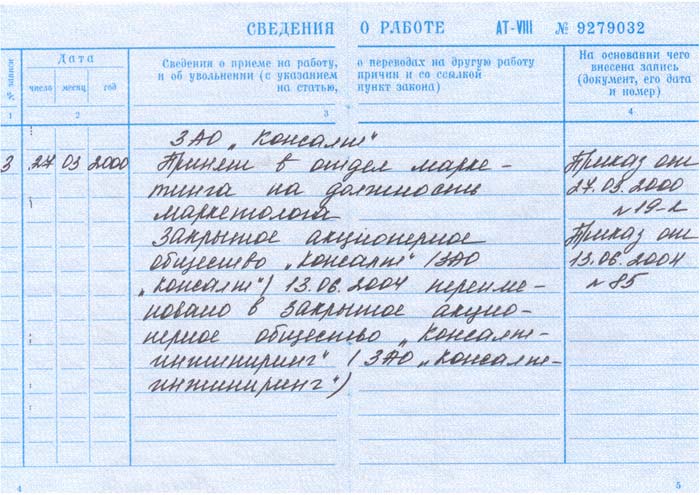 СВЕДЕНИЯ О РАБОТЕ АТ-VIII № 9279032
№ записи
Дата
число месяц год
Сведения о приеме на работу, о переводах на другую работу
и об увольнении (с указанием причин и со ссылкой
на статью, пункт закона)
На основании чего
внесена запись
(документ, его дата
и номер)
1 2 3 4
ЗАО „Консалт"
3 27 03 2000 Принят в отдел марке- Приказ от
тинга на должность 27.03.2000
маркетолога № 19-к
Закрытое акционерное Приказ от
общество „Консалт" /ЗАО 13.06.2004
„Консалт"/ 13.06.2004 переиме- № 85
новано в Закрытое акцио-
нерное общество „Консалт-
инжиниринг" (ЗАО „Консалт-
инжиниринг")
4 5